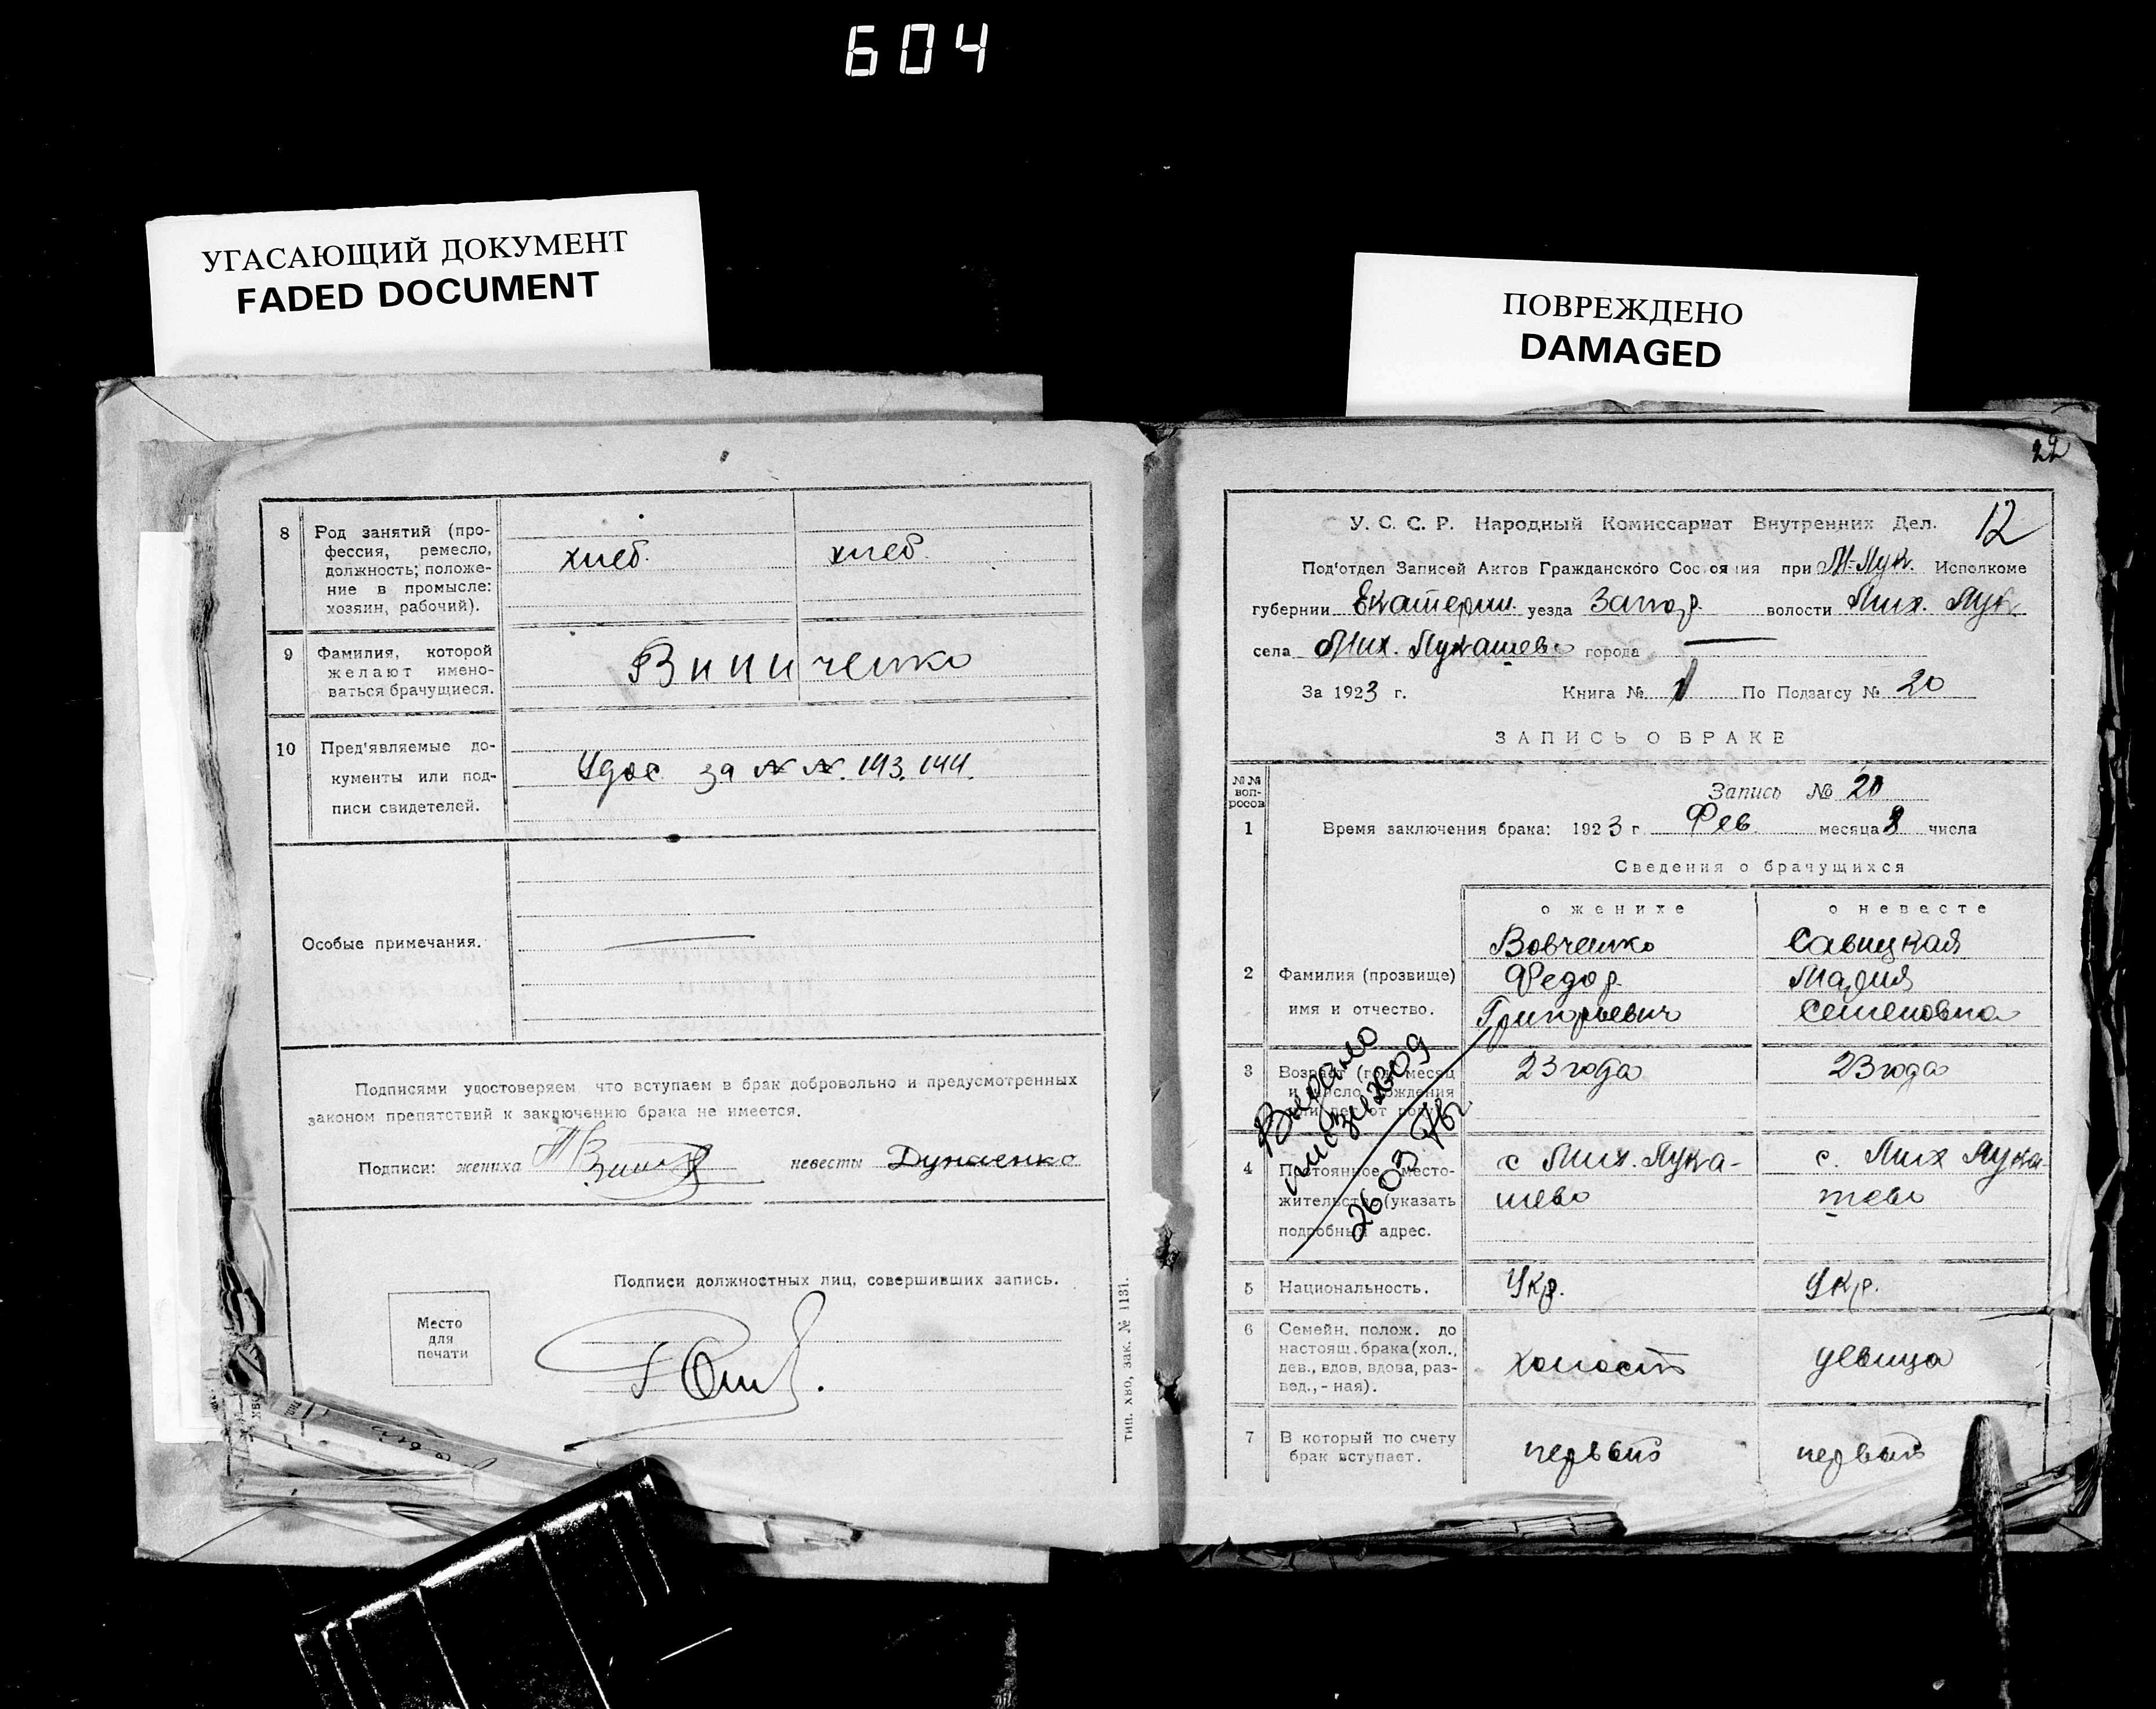 604
УГАСАЮЩИЙ ДОКУМЕНТ
FADED DOCUMENT
ПОВРЕЖДЕНО
DAMAGED
8 Род занятий (про-
фессия, ремесло,
должность; положе-
ние в промысле:
хозяин, рабочий).
хлеб. хлеб.
9 Фамилия, которой
желают имено-
ваться брачущиеся.
Винниченко
10 Пред'являемые до-
кументы или под-
писи свидетелей.
Удос за №№. 143. 144.
Особые примечания.
Подписями удостоверяем что вступаем в брак добровольно и предусмотренных
законом препятствий к заключению брака не имеется.
Подписи: жениха невесты Дунаенко
Подписи должностных лиц, совершивших запись.
Место
для
печати
тип. хво, зак. № 1131.
22
12
У. С. С. Р. Народный Комиссариат Внутренних Дел.
Под'отдел Записей Актов Гражданского Состояния при М-Лук. Исполкоме
губернии Екатерин. уезда Запор. волости Мих. Лук
села Мих. Лукашево города —
За 1923 г. Книга № 1 По Подзагсу № 20
ЗАПИСЬ О БРАКЕ
№№
воп-
росов
Запись № 20
1 Время заключения брака: 1923 г. Фев. месяца 8 числа
Сведения о брачущихся
о женихе о невесте
2 Фамилия (прозвище)
имя и отчество.
Вовченко
Федор
Григорьевич
Савицкая
Мария
Семеновна
3 Возраст (год, месяц
и число рождения
23 года 23 года
Выдано
26 03
4 Постоянное место-
жительство (указать
подробный адрес.
с Мих. Лука-
шево
с. Мих Лука-
шево
5 Национальность.
Укр. Укр.
6 Семейн. полож. до
настоящ. брака (хол.,
дев., вдов, вдова, раз-
вед., - ная).
холост девица
7 В который по счету
брак вступает.
первый первый